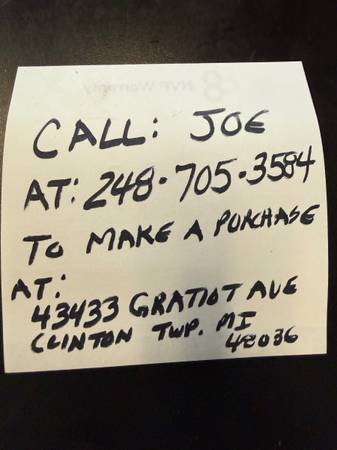 CALL: JOE
AT: 248·705·3584
TO MAKE A PURCHASE
AT:
43433 GRATIOT AVE
CLINTON TWP. MI
48036